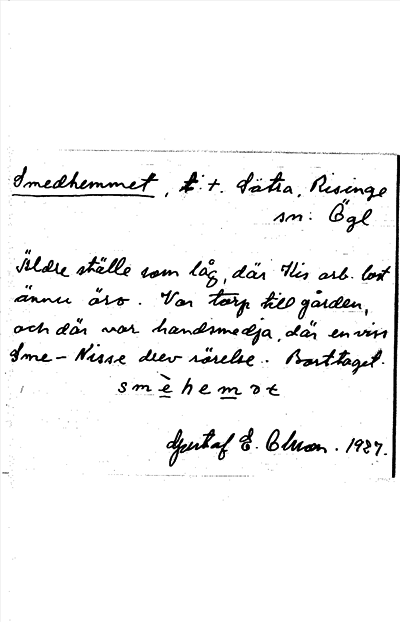 Smedhemmet, t. Sätra, Risinge
sn: Ögl
Äldre ställe som låg, där His arb. bost
ännu äro. Var torp till gården,
och där var handsmedja, där en viss
Sme-Nisse drev rörelse. Borttaget.
smèhemət
Gustaf E. 1927.